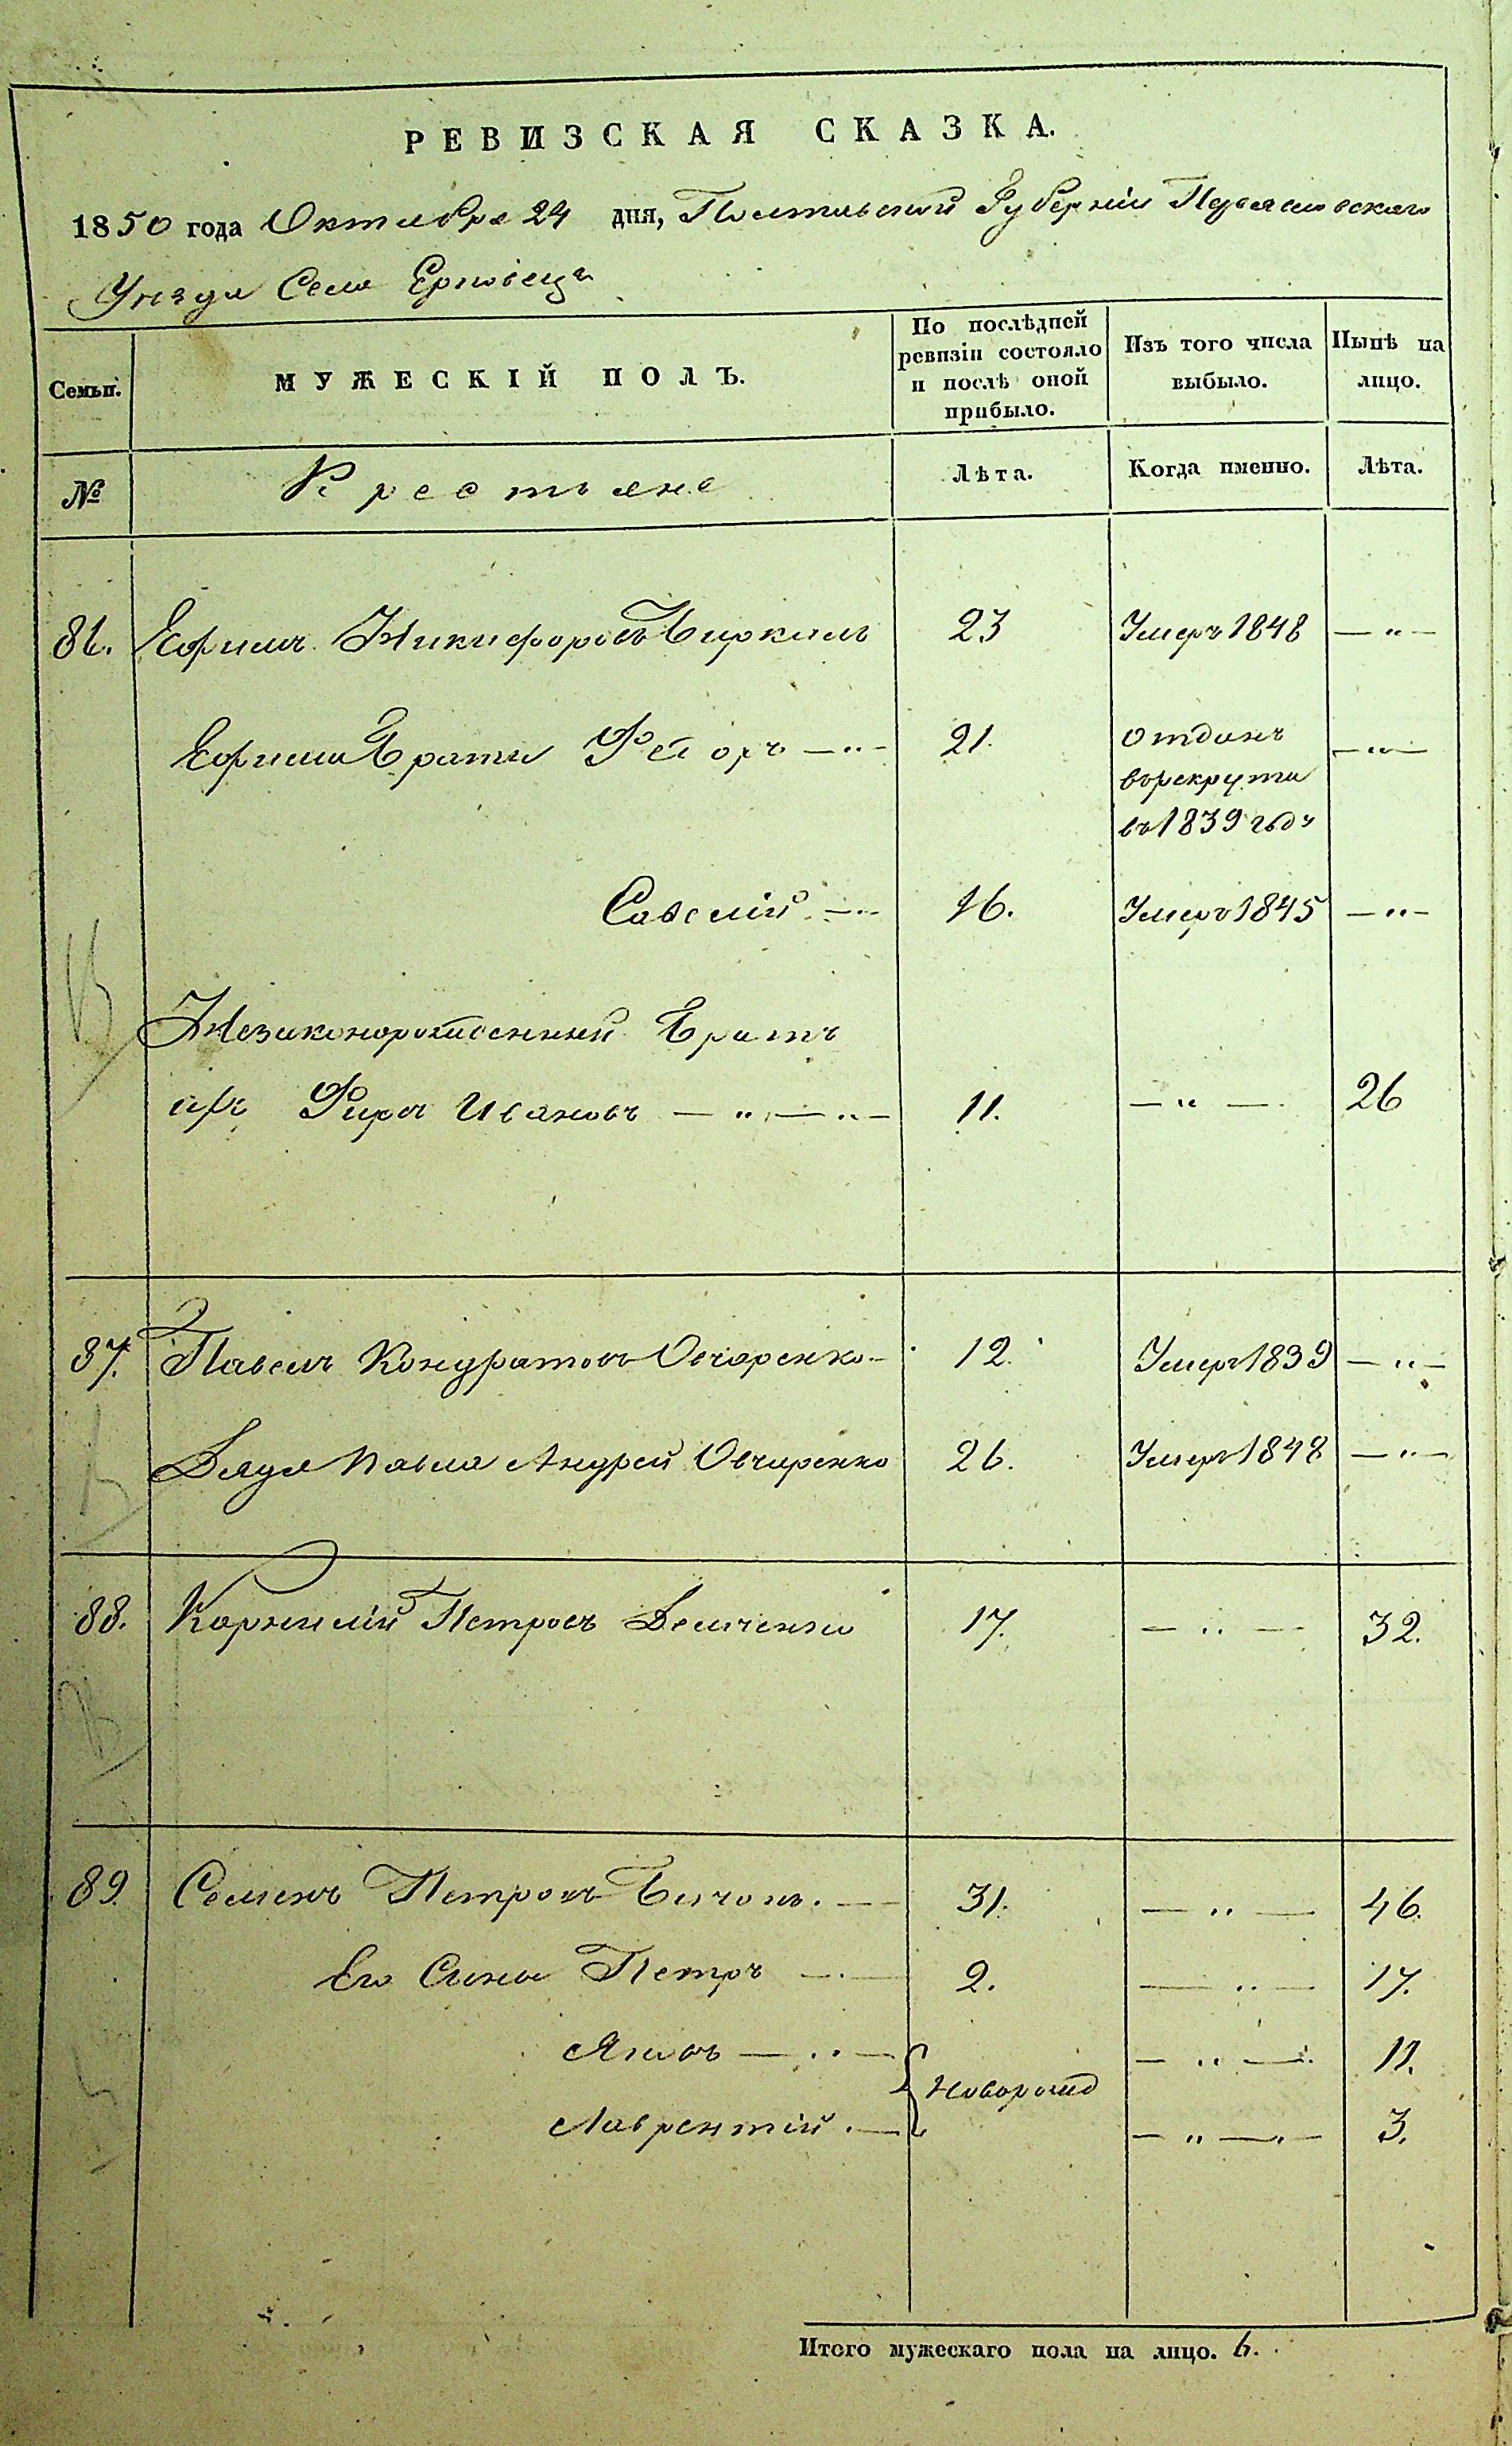 РЕВИЗСКАЯ СКАЗКА.
1850 года Октября 24 дня, Полтавской Губерніи Переясловскаго
Уезда Села Ерковець
Семьи.
МУЖЕСКІЙ ПОЛЪ.
По послѣдней ревизіи состояло и послѣ оной прибыло.
Изъ того числа выбыло.
Нынѣ на лицо.
№
Крестьяне
Лѣта.
Когда именно.
Лѣта.
86. Ефимъ Никифоровъ 23 Умеръ 1848 — " —
Ефима Брати Федоръ — " — 21. отданъ — " —
въ рекрути
въ 1839 году
Савелій — " — 16. Умеръ 1845 — " —
Незаконорожденный Братъ
Фирсъ Ивановъ — " — " — 11. — " — 26
87. Павелъ Кондратовъ Овчаренко — 12. Умеръ 1839 — " —
Дядя Павла Андрей Овчаренко 26. Умеръ 1848 — " —
88. Корнилій Петровъ Демченко 17. — " — 32.
89. Семенъ Петровъ — 31. — " — 46.
Его Сыны Петръ — " — 2. — " — 17.
Яковъ — " — Новорожд — " — 11.
Лаврентій. — — " — " — 3.
Итого мужескаго пола на лицо. 6.